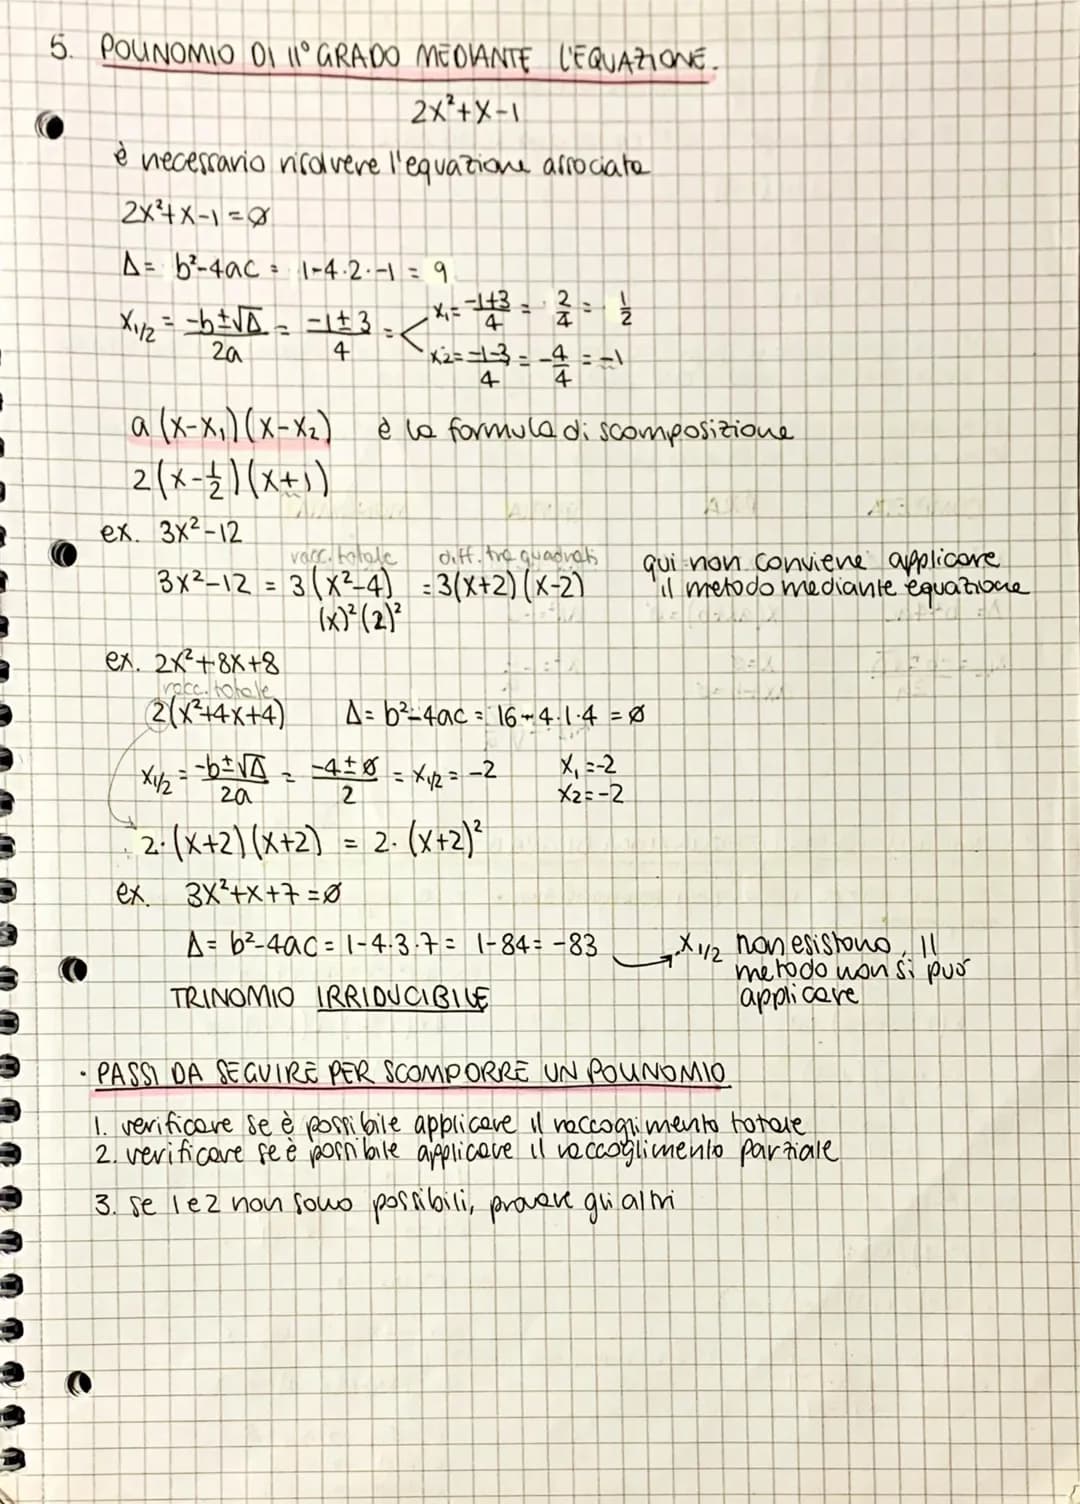 5. POLINOMIO DI II° GRADO MEDIANTE L'EQUAZIONE.
2x²+x-1
è necessario risolvere l'equazione associata
2x²+x-1=∅
Δ= b²-4ac = 1-4·2·-1 = 9
x1/2 = -b±√Δ/2a = -1±3/4 = < x₁= -1+3/4 = 2/4 = 1/2
x2= -1-3/4 = -4/4 = -1
a(x-x₁)(x-x₂) è la formula di scomposizione
2(x-1/2)(x+1)
ex. 3x²-12
racc. totale diff. tra quadrati
3x²-12 = 3(x²-4) =3(x+2)(x-2) qui non conviene applicare
(x)²(2)² il metodo mediante equazione
ex. 2x²+8x+8
racc. totale
2(x²+4x+4) Δ= b²-4ac = 16-4·1·4 = ∅
x1/2 = -b±√Δ/2a = -4±∅/2 = x1/2 = -2 x₁=-2
x2=-2
2·(x+2)(x+2) = 2·(x+2)²
ex. 3x²+x+7=∅
Δ= b²-4ac = 1-4·3·7 = 1-84= -83 → x1/2 non esistono, il
metodo non si può
TRINOMIO IRRIDUCIBILE applicare
· PASSI DA SEGUIRE PER SCOMPORRE UN POLINOMIO
1. verificare se è possibile applicare il raccoglimento totale
2. verificare se è possibile applicare il raccoglimento parziale
3. se 1 e 2 non sono possibili, provare gli altri